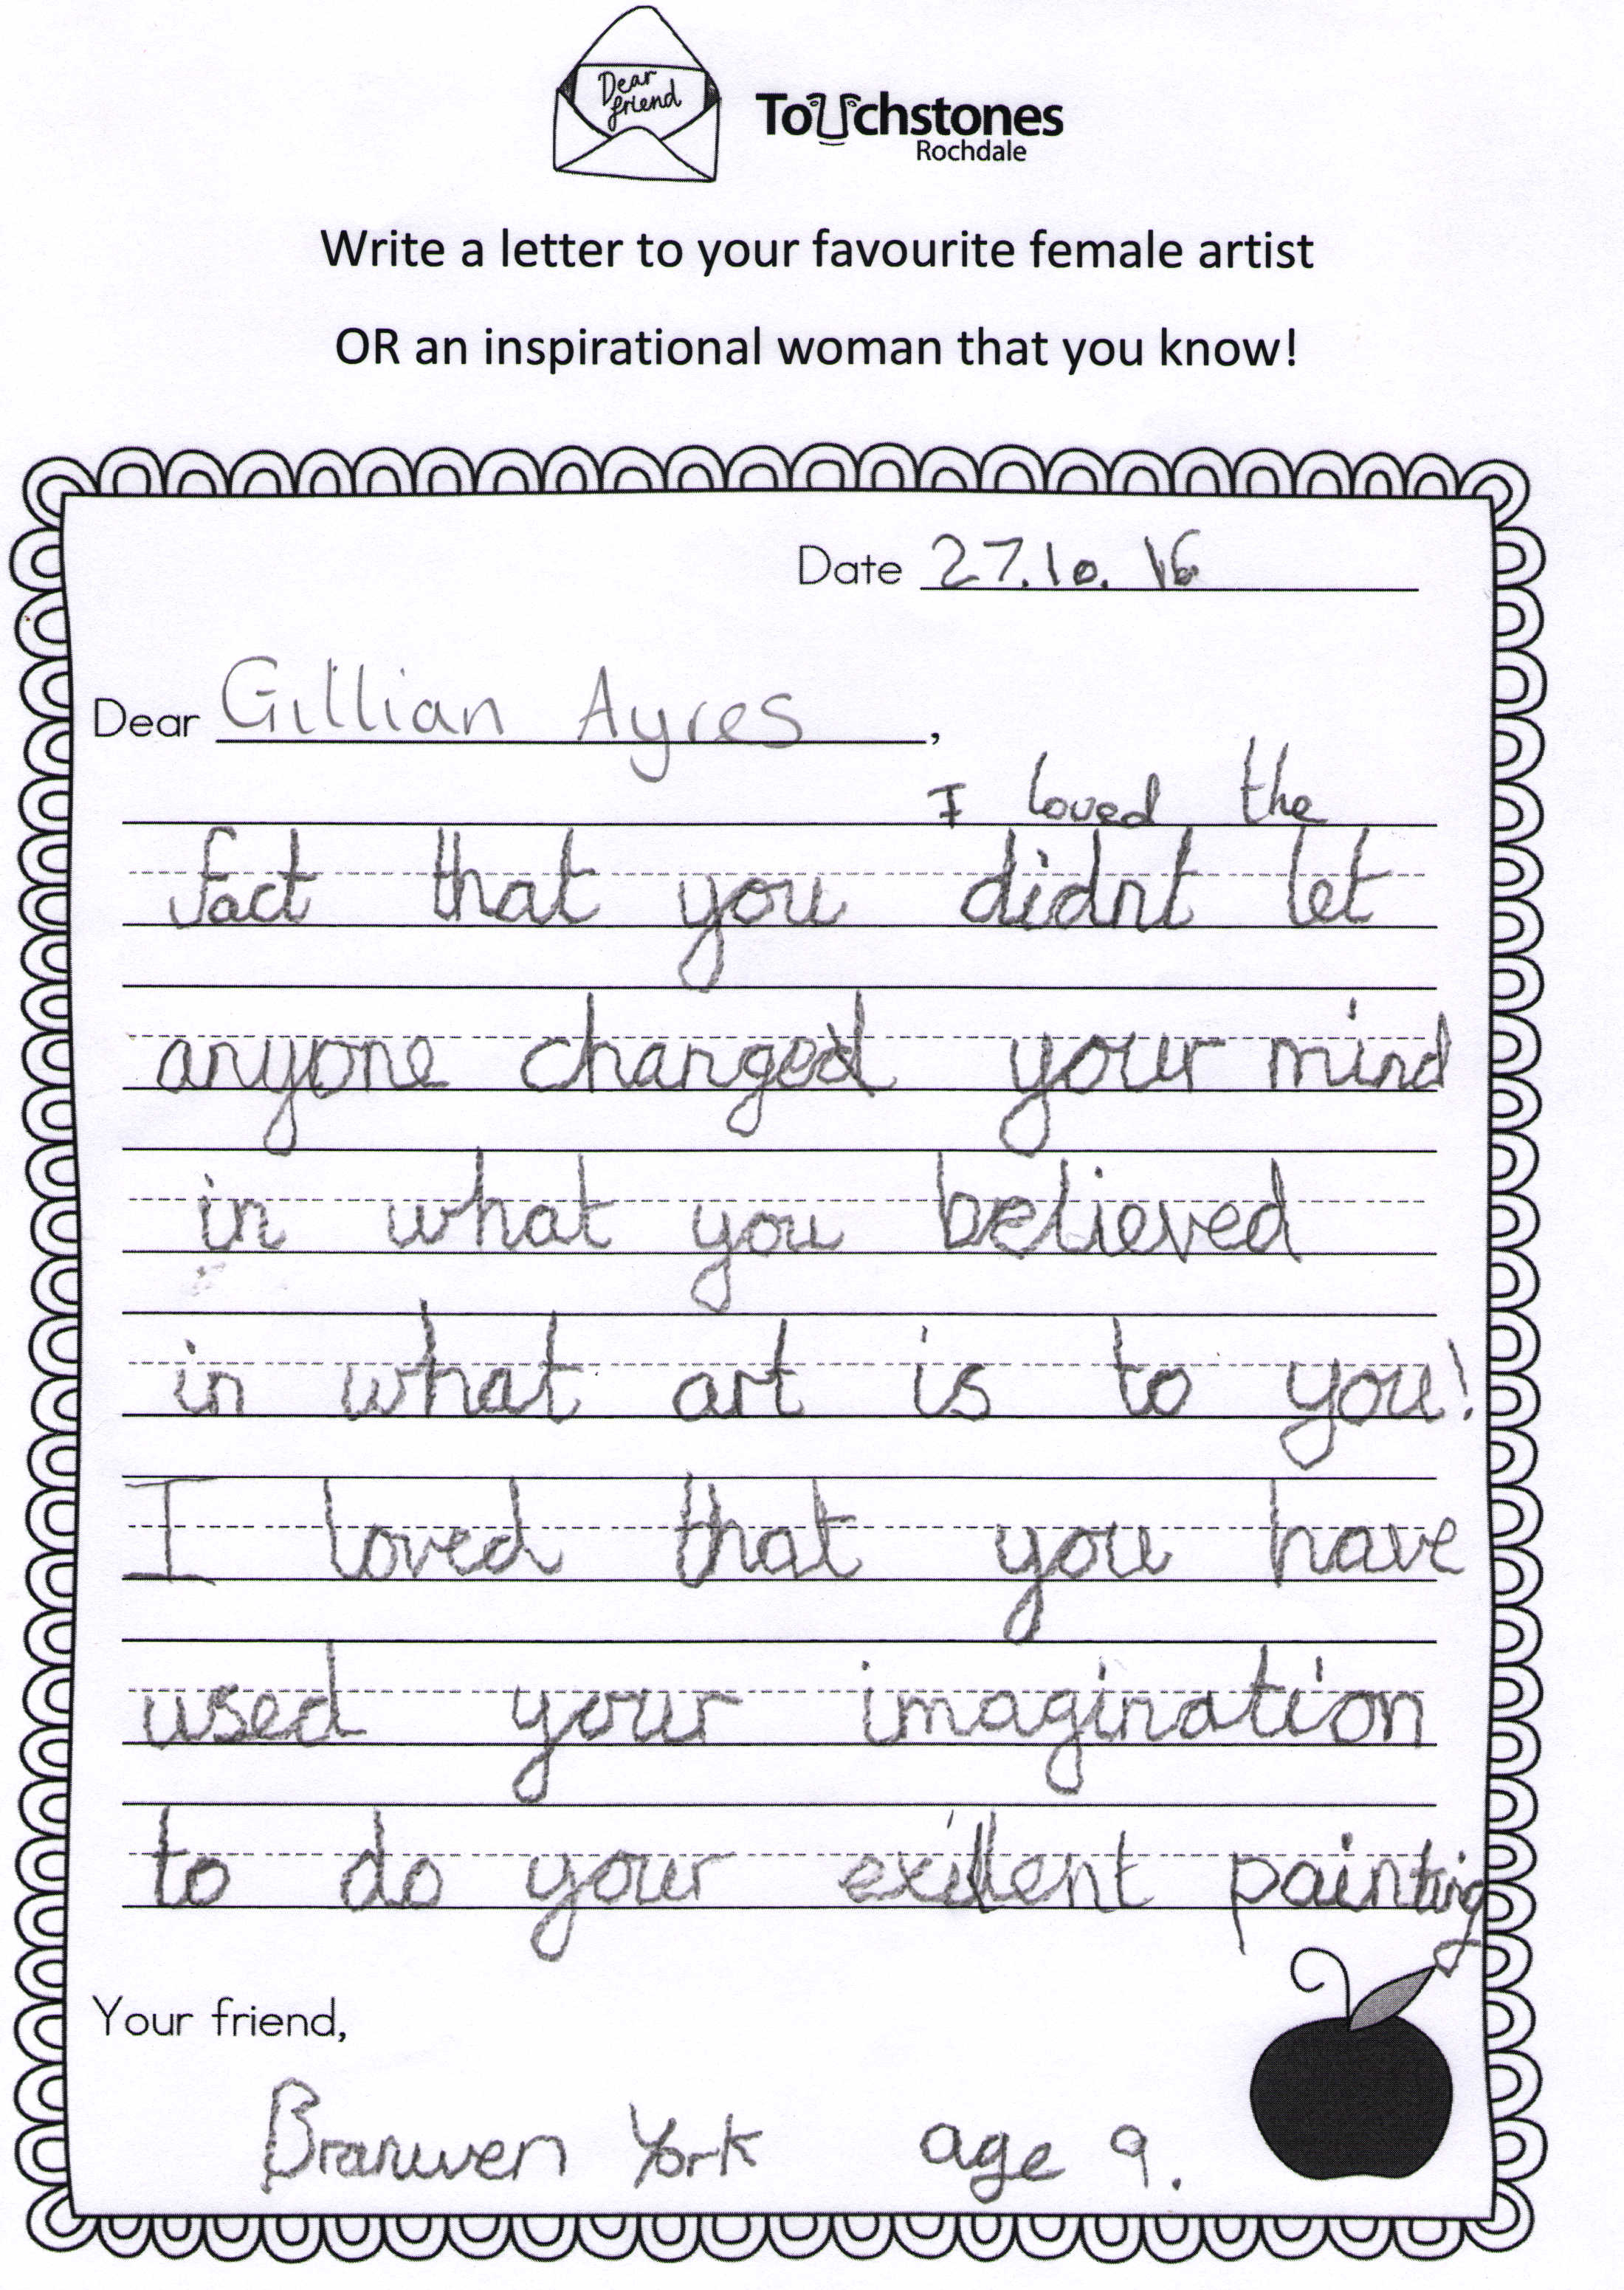 Dear friend
Touchstones
Rochdale
Write a letter to your favourite female artist
OR an inspirational woman that you know!
Date 27.10.16
Dear Gillian Ayres,
I loved the
fact that you didnt let
anyone changed your mind
in what you believed
in what art is to you!
I loved that you have
used your imagination
to do your exillent painting
Your friend,
Branwen York age 9.